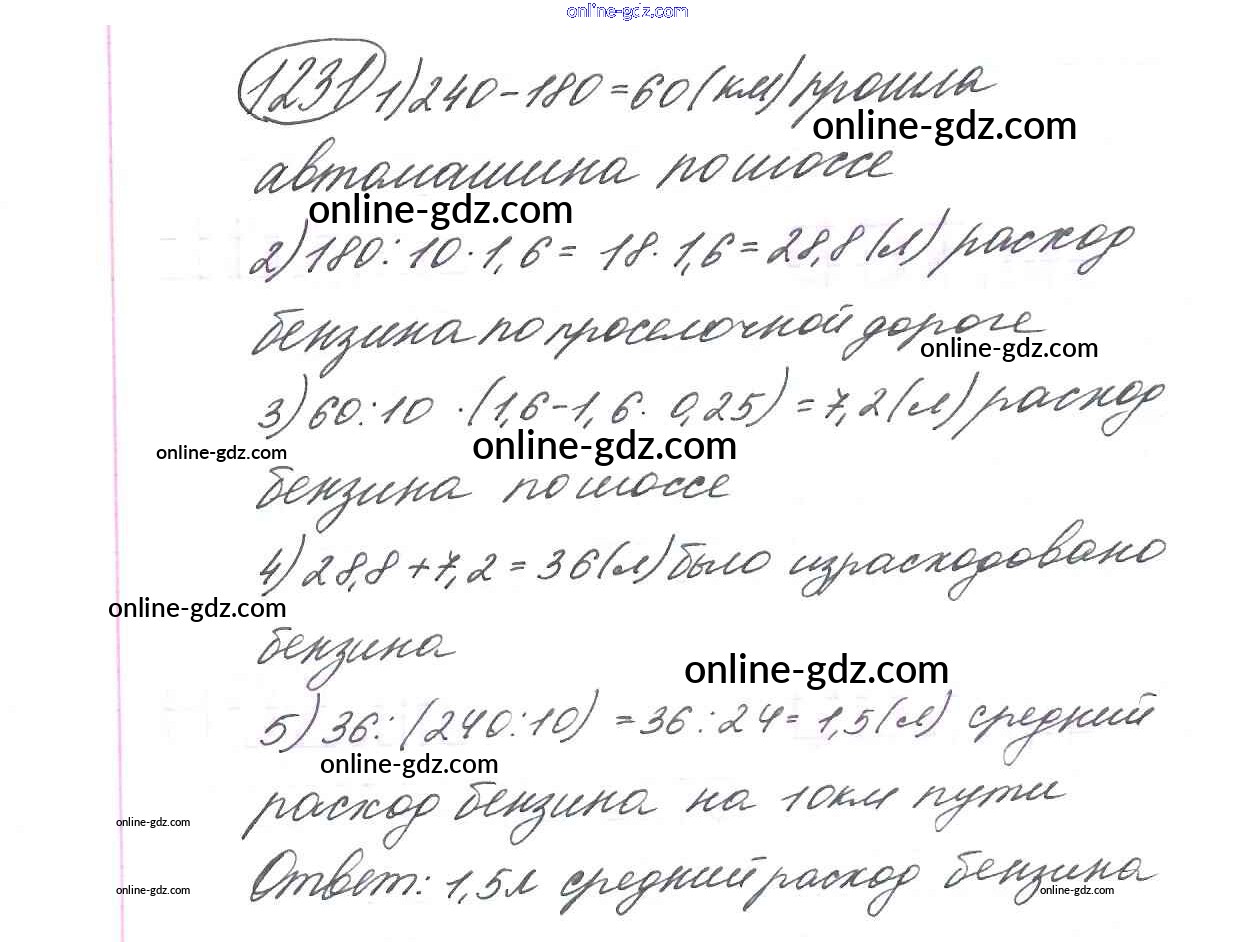 online-gdz.com
1231 1) 240 - 180 = 60 (км) прошла
online-gdz.com
автомашина по шоссе
online-gdz.com
2) 180 : 10 · 1,6 = 18 · 1,6 = 28,8 (л) расход
бензина по проселочной дороге
online-gdz.com
3) 60 : 10 · (1,6 - 1,6 · 0,25) = 7,2 (л) расход
online-gdz.com online-gdz.com
бензина по шоссе
4) 28,8 + 7,2 = 36 (л) было израсходовано
online-gdz.com
бензина
online-gdz.com
5) 36 : (240 : 10) = 36 : 24 = 1,5 (л) средний
online-gdz.com
расход бензина на 10км пути
online-gdz.com
Ответ: 1,5л средний расход бензина
online-gdz.com online-gdz.com